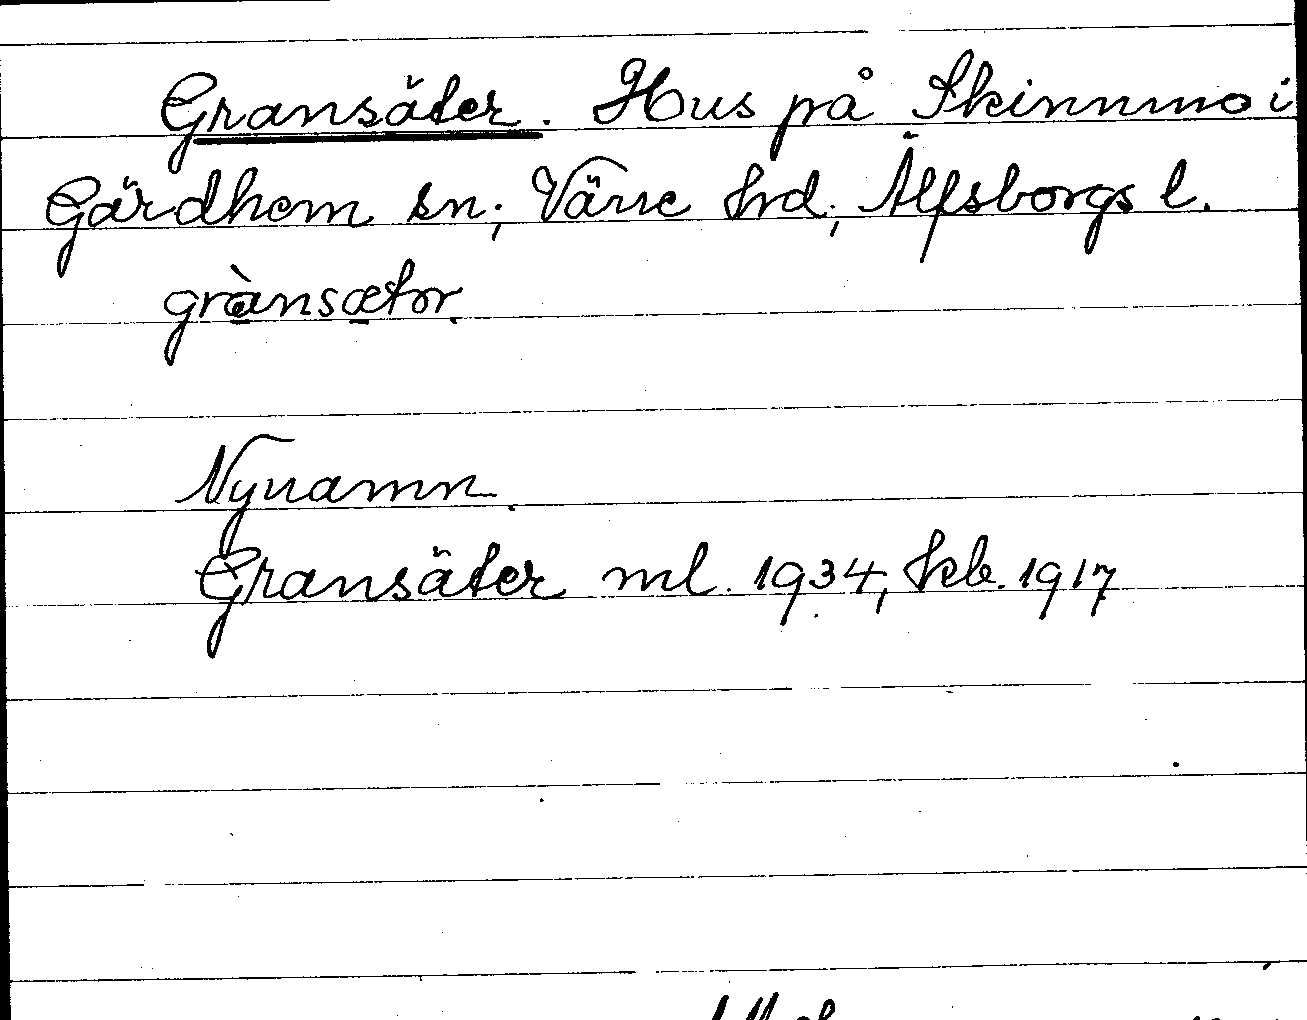 Gransäter. Hus på Skinnmo i
Gärdhem sn; Väne hrd; Älfsborgs l.
grànsætər
Nynamn.
Gransäter ml. 1934, kb. 1917